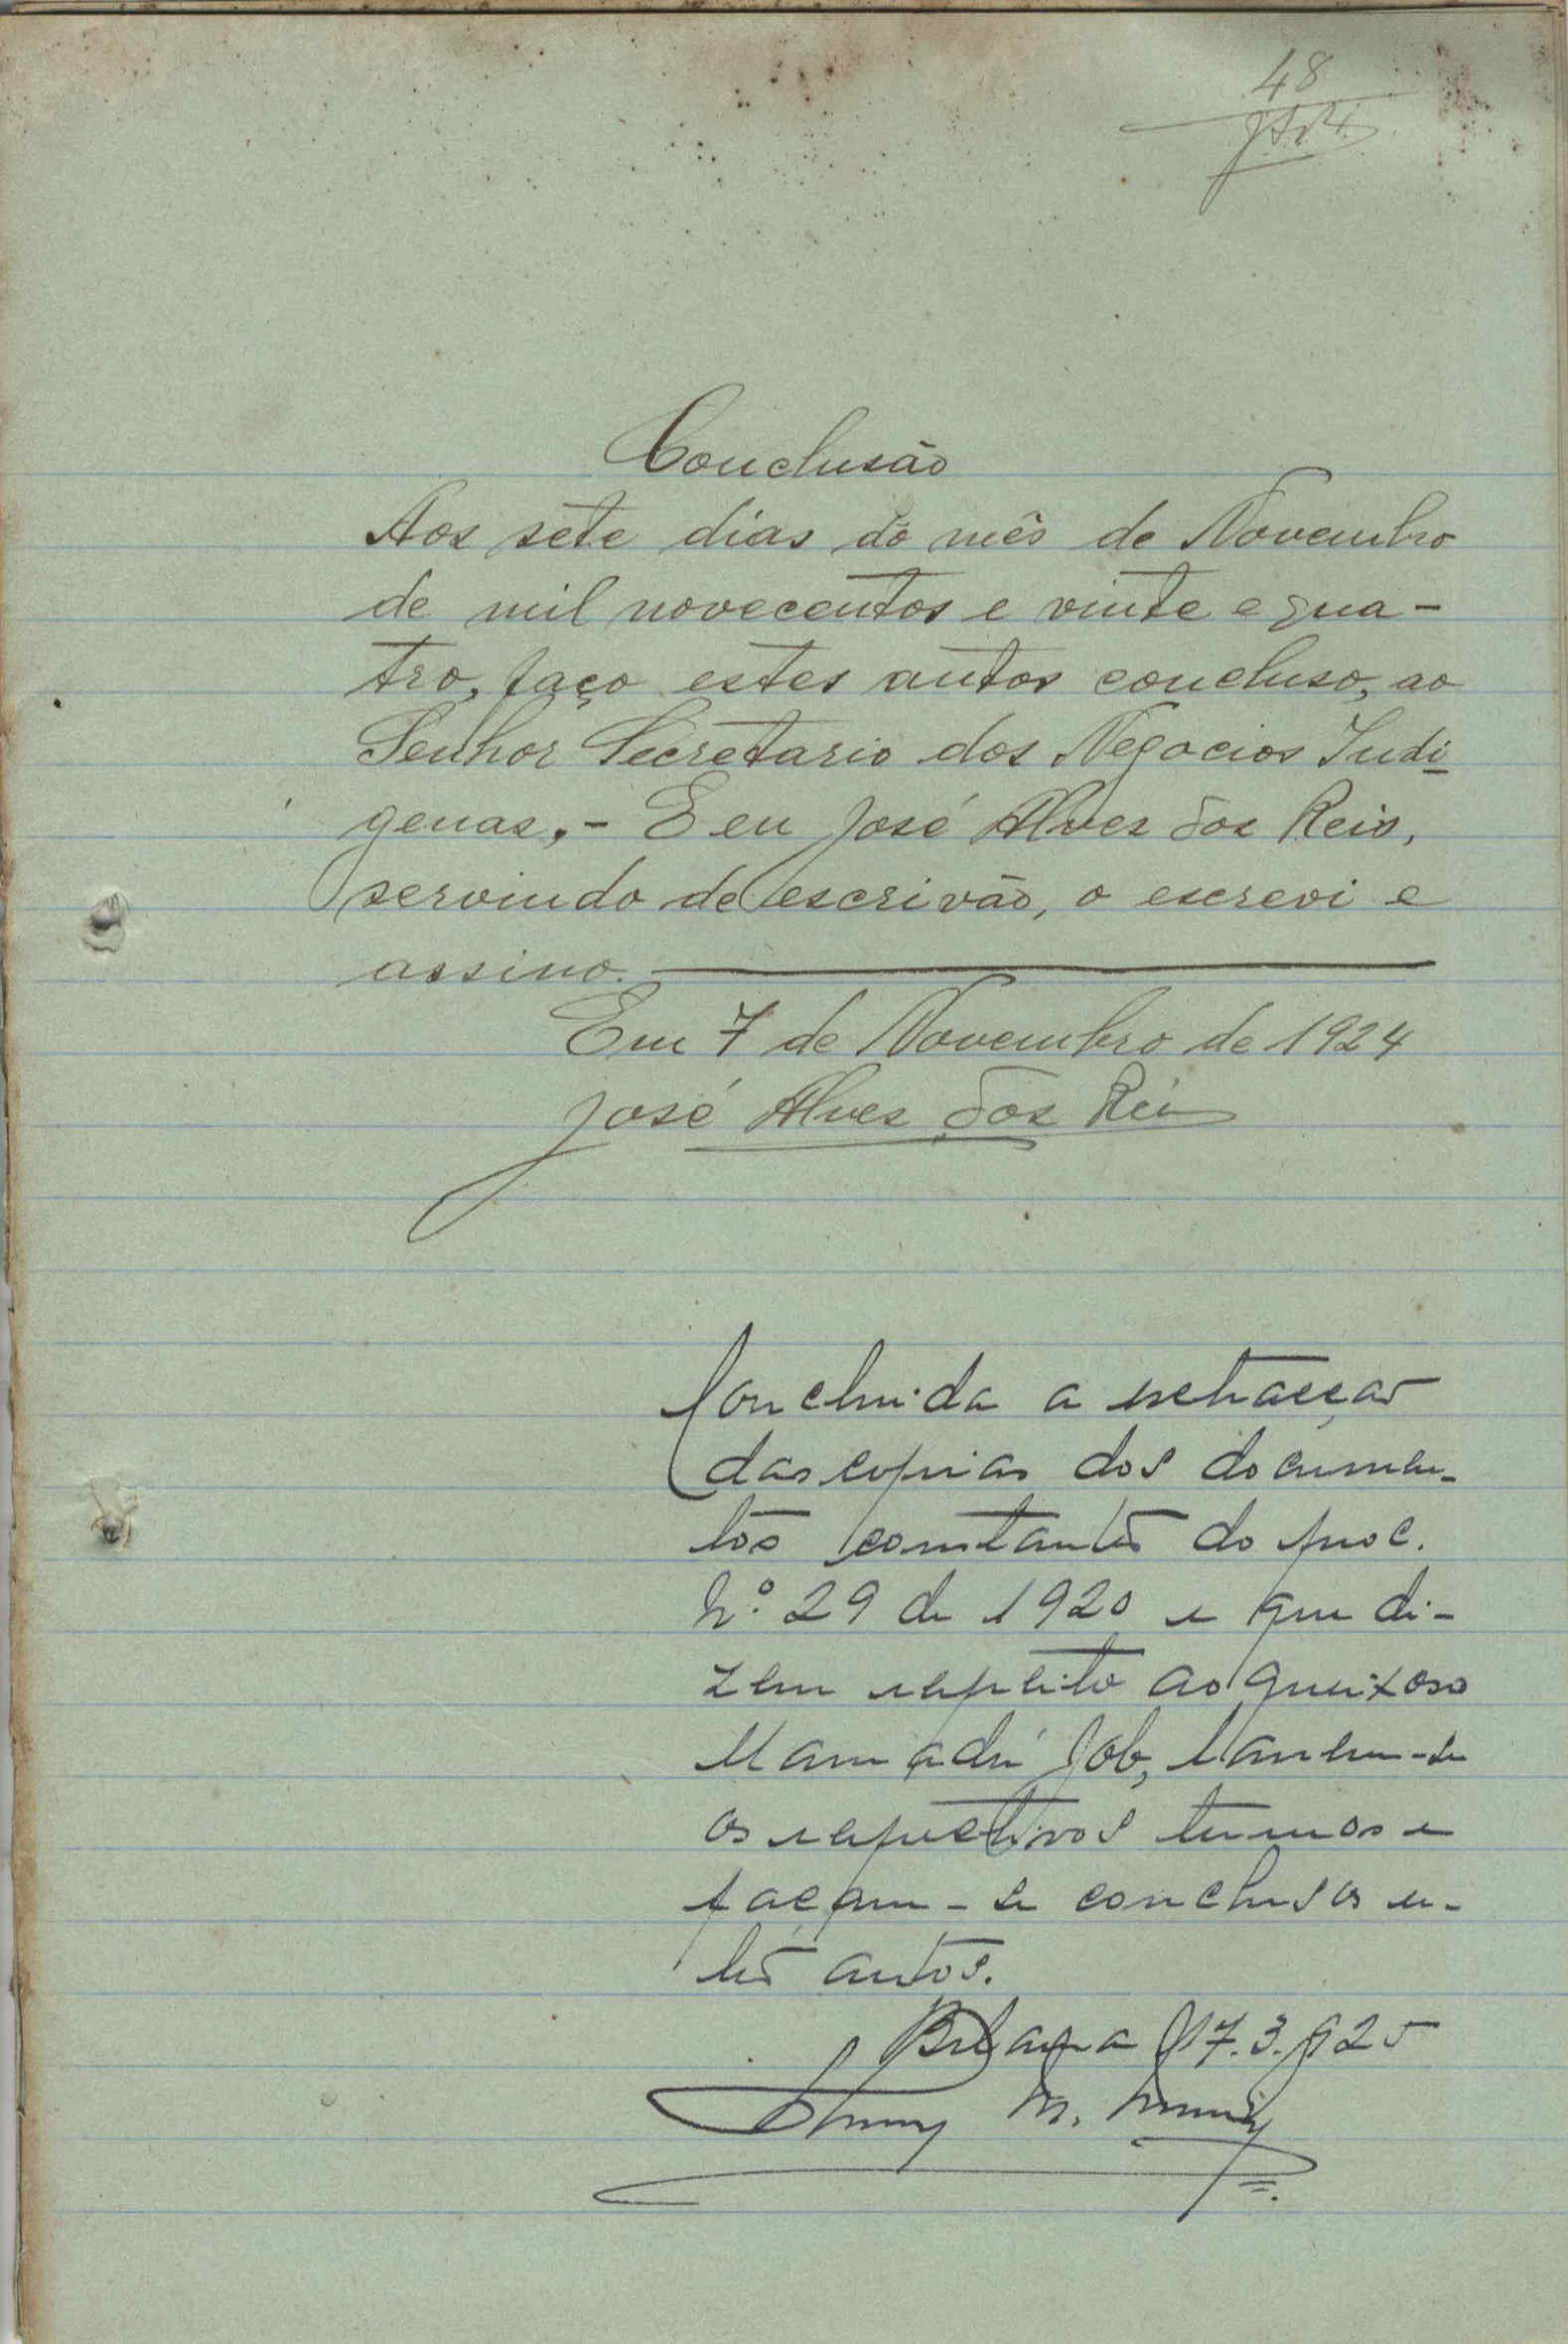 48
Conclusão
Aos sete dias do mês de Novembro
de mil novecentos e vinte e qua-
tro, faço estes autos concluso, ao
Senhor Secretario dos Negocios Indi-
genas,- E eu José Alves dos Reis,
servindo de escrivão, o escrevi e
assino.
Em 7 de Novembro de 1924
José Alves dos Reis
Concluida a extracção
das copias dos documen-
tos constantes do proc.
Nº 29 de 1920 e que di-
zem respeito ao queixoso
Mamadú Job, lancem-se
os respectivos termos e
façam-se conclusos es-
tes autos.
Bolama 17.3.925